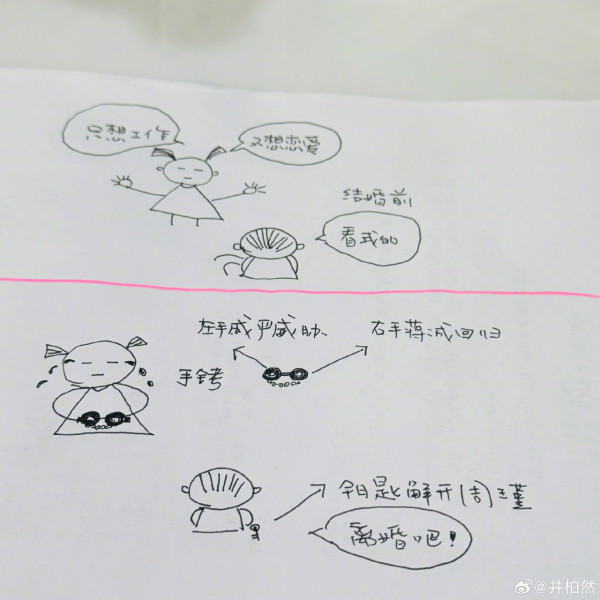 只想工作
又想恋爱
结婚前
看我的
左手 威胁
右手 回归
手铐
钥匙解开(周)瑾
离婚吧!
@井柏然